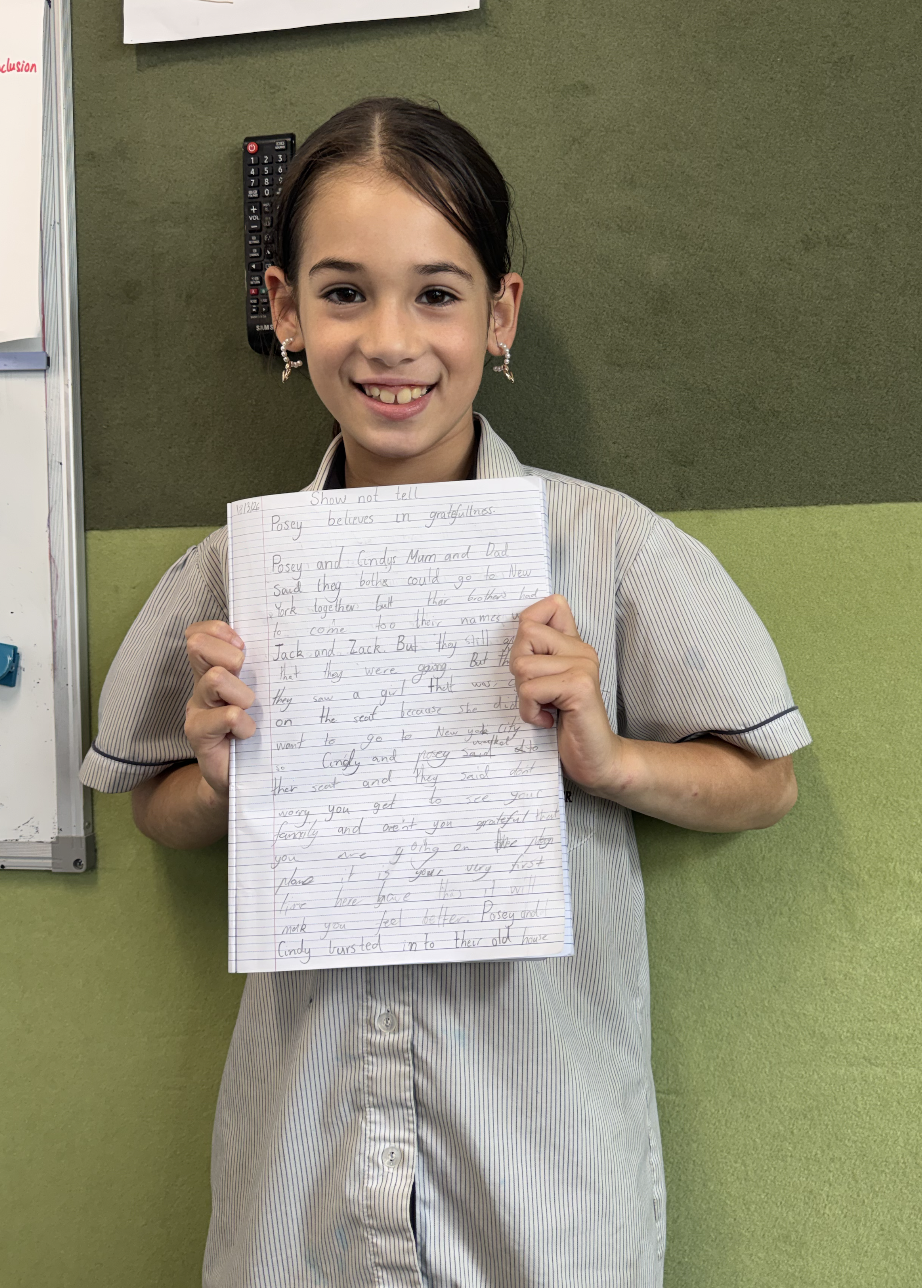 clusion
1 2 3
4 5 6
7 8 9
0
VOL
SAMS
Show not tell
Posey believes in gratefullness.
Posey and Cindys Mum and Dad
said they bothe could go to New
York together but ther brothers had
to come too their names
Jack and Zack. But they still
that they were going. But
they saw a girl thatt was
on the seat because she
want to go to New york city
Cindy and posey said
walked
ther seat and they said dont
worry you get to see your
family and aren't you grateful that
you are going on the
plane it is your very first
time here have this it will
mak you feel better. Posey and
Cindy bursted into their old house
R